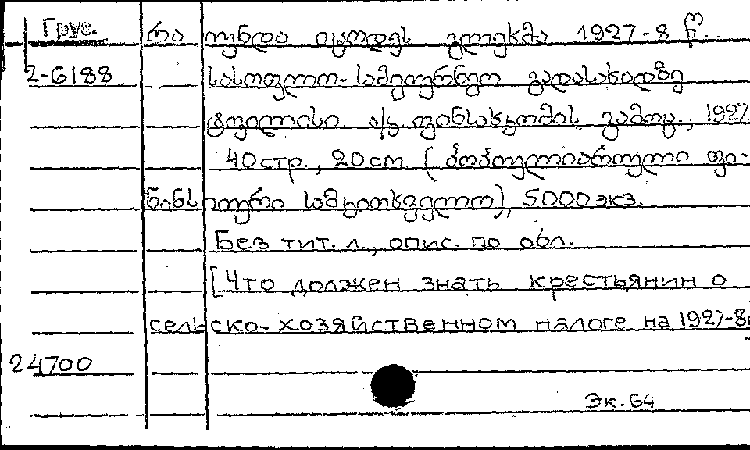 Груз. რა უნდა იცოდეს გლეხმა 1927-8 წ.
2-6188 სასოფლო-სამეურნეო გადასახადზე
ტფილისი. ფინსახკომის გამოც., 1927
40 стр., 20 cm. (პოპულიარული ფი-
ნანსიური სამკითხველო), 5000 экз.
Без тит. л., опис. по обл.
[Что должен знать крестьянин о
сельско-хозяйственном налоге на 1927-8
24700
Эк. 64